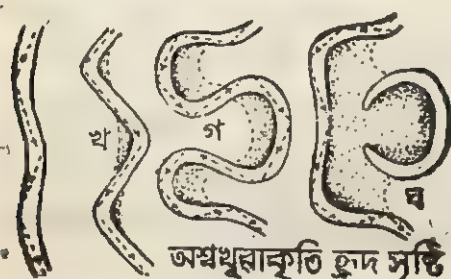 খ
গ
ঘ
অশ্বখুরাকৃতি হ্রদ সৃষ্টি